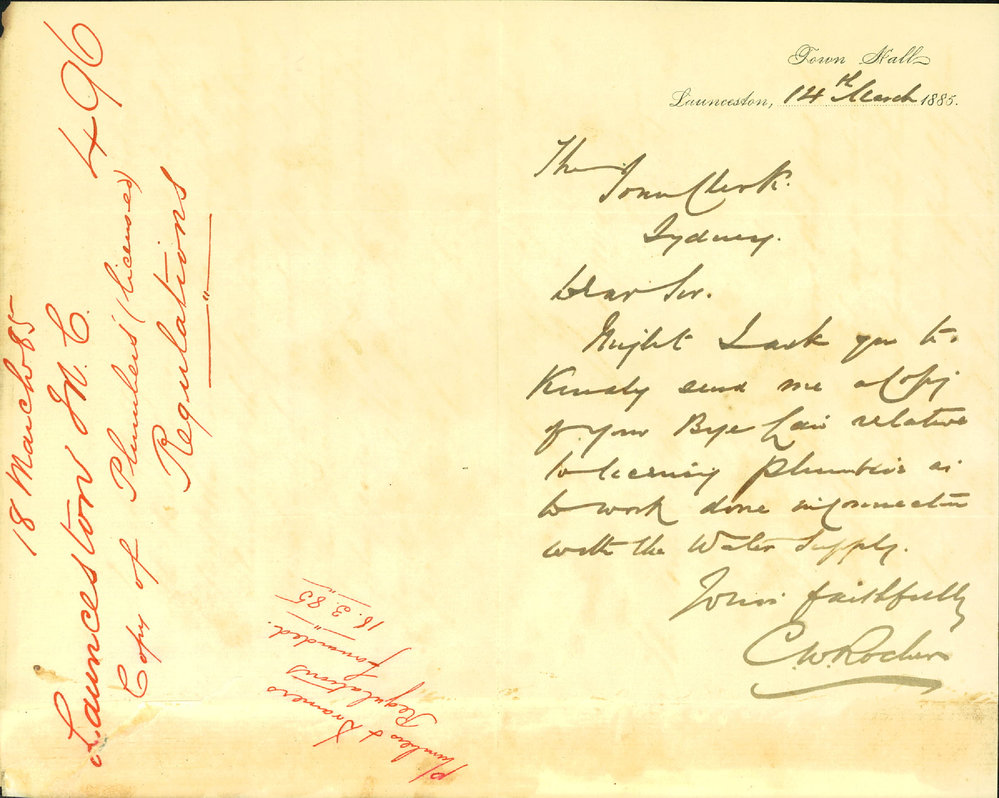 Town Hall
Launceston, 14th March 1885.
The
Town Clerk.
Sydney.
Dear Sir.
Might I ask you to
Kindly send me a Copy
of your Bye Law relative
to licensing Plumbers as
to work done in connection
with the Water Supply.
Yours faithfully
C. W. Rocher
496
18 March 85
Launceston M. C.
Copy of Plumbers' (licensed)
Regulations
Plumbers & Drainers
Regulations
forwarded.
18.3.85